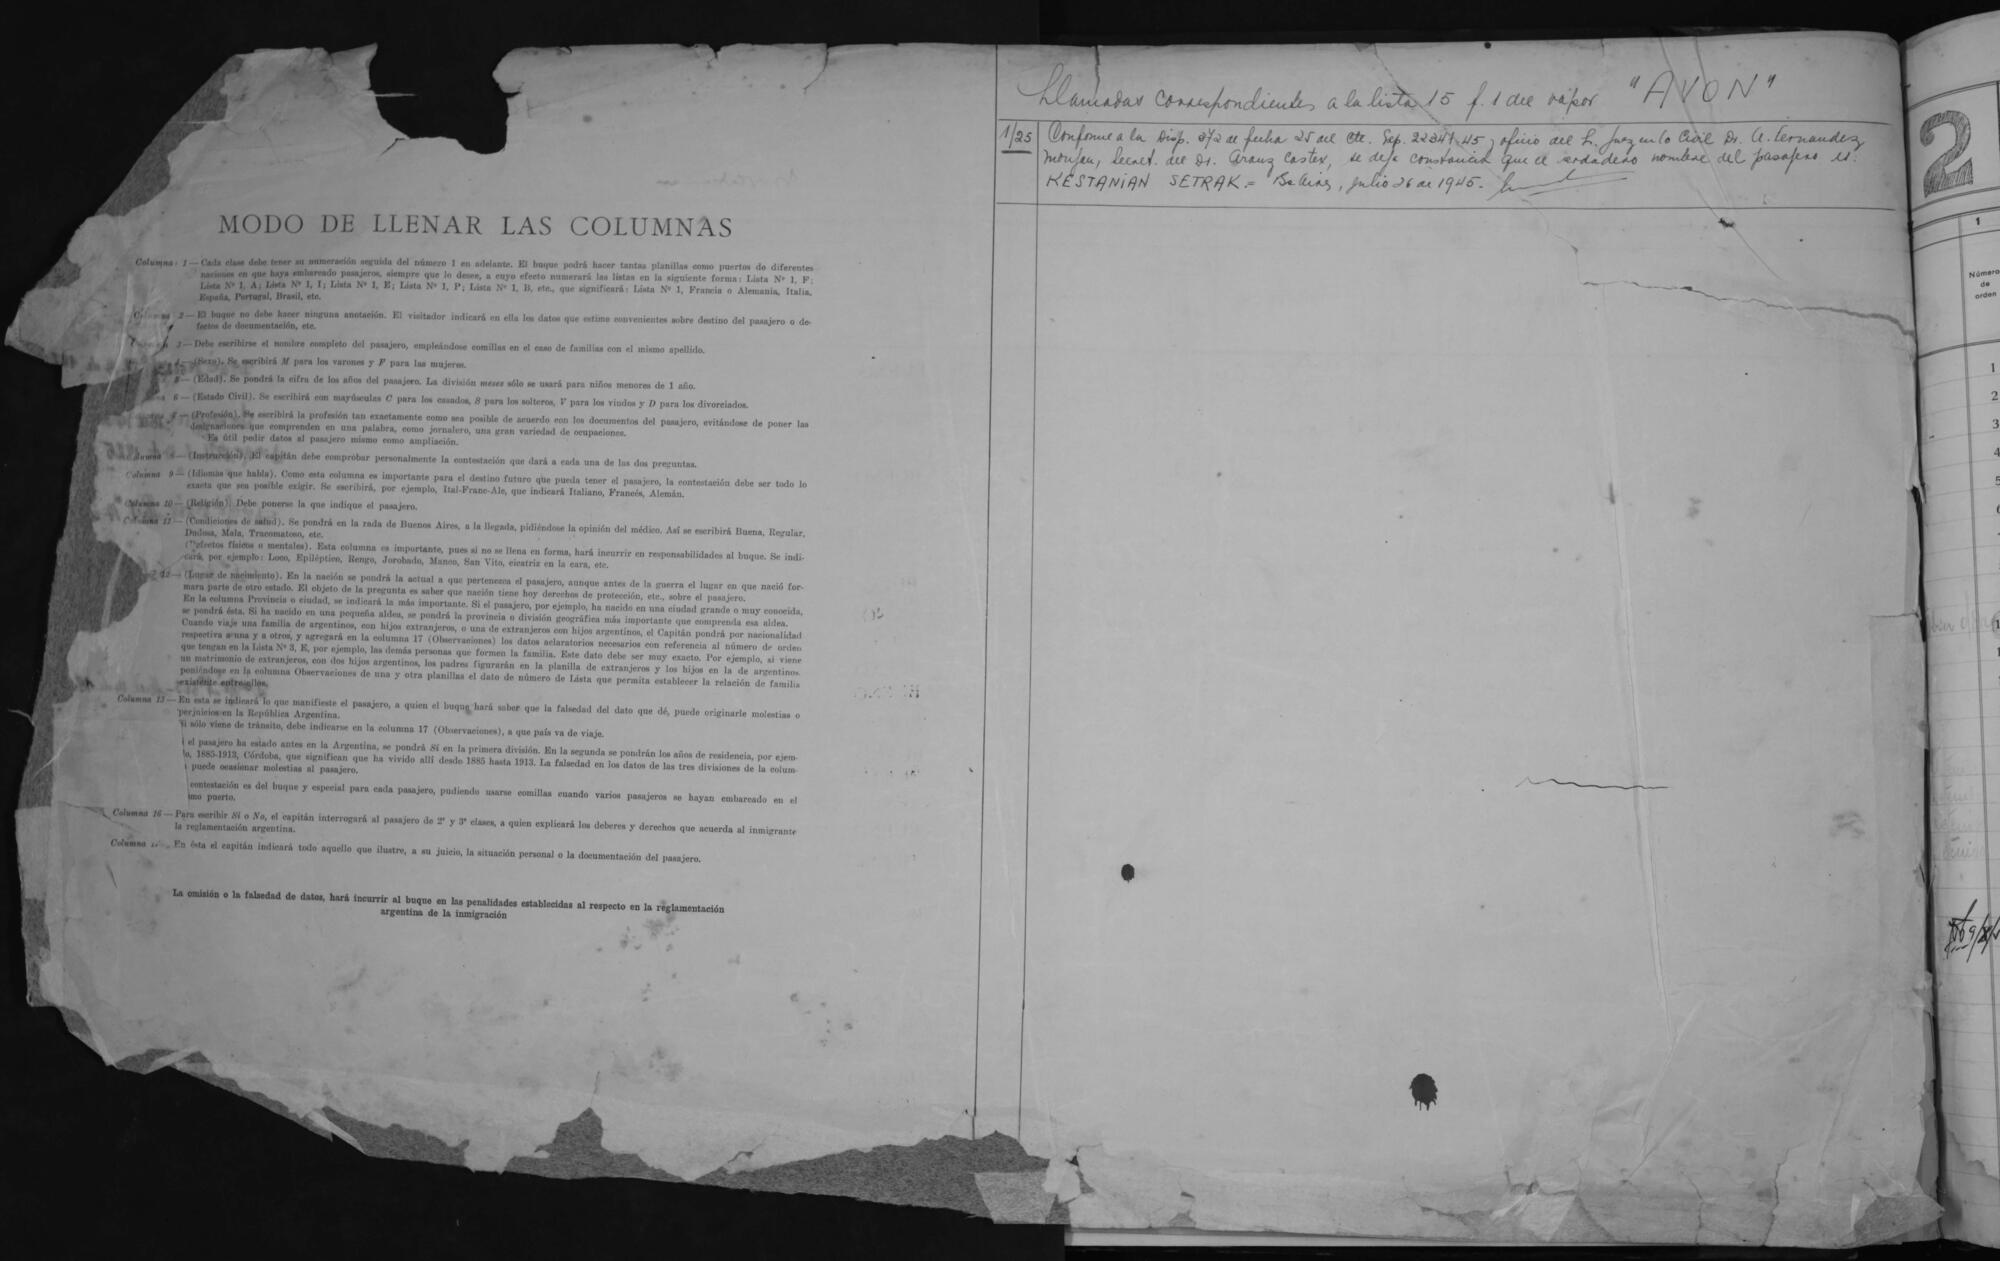 MODO DE LLENAR LAS COLUMNAS
Columna 1 — Cada clase debe tener su numeración seguida del número 1 en adelante. El buque podrá hacer tantas planillas como puertos de diferentes
naciones en que haya embarcado pasajeros, siempre que lo desee, a cuyo efecto numerará las listas en la siguiente forma: Lista Nº 1, F;
Lista Nº 1, A; Lista Nº 1, I; Lista Nº 1, E; Lista Nº 1, P; Lista Nº 1, B, etc., que significará: Lista Nº 1, Francia o Alemania, Italia,
España, Portugal, Brasil, etc.
2 — El buque no debe hacer ninguna anotación. El visitador indicará en ella los datos que estime convenientes sobre destino del pasajero o de-
fectos de documentación, etc.
3 — Debe escribirse el nombre completo del pasajero, empleándose comillas en el caso de familias con el mismo apellido.
4 — (Sexo). Se escribirá M para los varones y F para las mujeres.
5 — (Edad). Se pondrá la cifra de los años del pasajero. La división meses sólo se usará para niños menores de 1 año.
6 — (Estado Civil). Se escribirá con mayúsculas C para los casados, S para los solteros, V para los viudos y D para los divorciados.
7 — (Profesión). Se escribirá la profesión tan exactamente como sea posible de acuerdo con los documentos del pasajero, evitándose de poner las
designaciones que comprenden en una palabra, como jornalero, una gran variedad de ocupaciones.
Es útil pedir datos al pasajero mismo como ampliación.
— (Instrucción). El capitán debe comprobar personalmente la contestación que dará a cada una de las dos preguntas.
Columna 9 — (Idiomas que habla). Como esta columna es importante para el destino futuro que pueda tener el pasajero, la contestación debe ser todo lo
exacta que sea posible exigir. Se escribirá, por ejemplo, Ital-Franc-Ale, que indicará Italiano, Francés, Alemán.
Columna 10 — (Religión). Debe ponerse la que indique el pasajero.
Columna 11 — (Condiciones de salud). Se pondrá en la rada de Buenos Aires, a la llegada, pidiéndose la opinión del médico. Así se escribirá Buena, Regular,
Dudosa, Mala, Tracomatoso, etc.
(Defectos físicos o mentales). Esta columna es importante, pues si no se llena en forma, hará incurrir en responsabilidades al buque. Se indi-
cará, por ejemplo: Loco, Epiléptico, Rengo, Jorobado, Manco, San Vito, cicatriz en la cara, etc.
12 — (Lugar de nacimiento). En la nación se pondrá la actual a que pertenezca el pasajero, aunque antes de la guerra el lugar en que nació for-
mara parte de otro estado. El objeto de la pregunta es saber que nación tiene hoy derechos de protección, etc., sobre el pasajero.
En la columna Provincia o ciudad, se indicará la más importante. Si el pasajero, por ejemplo, ha nacido en una ciudad grande o muy conocida,
se pondrá ésta. Si ha nacido en una pequeña aldea, se pondrá la provincia o división geográfica más importante que comprenda esa aldea.
Cuando viaje una familia de argentinos, con hijos extranjeros, o una de extranjeros con hijos argentinos, el Capitán pondrá por nacionalidad
respectiva a una y a otros, y agregará en la columna 17 (Observaciones) los datos aclaratorios necesarios con referencia al número de orden
que tengan en la Lista Nº 3, E, por ejemplo, las demás personas que formen la familia. Este dato debe ser muy exacto. Por ejemplo, si viene
un matrimonio de extranjeros, con dos hijos argentinos, los padres figurarán en la planilla de extranjeros y los hijos en la de argentinos,
poniéndose en la columna Observaciones de una y otra planillas el dato de número de Lista que permita establecer la relación de familia
existente entre ellos.
Columna 13 — En esta se indicará lo que manifieste el pasajero, a quien el buque hará saber que la falsedad del dato que dé, puede originarle molestias o
perjuicios en la República Argentina.
Si sólo viene de tránsito, debe indicarse en la columna 17 (Observaciones), a que país va de viaje.
el pasajero ha estado antes en la Argentina, se pondrá Sí en la primera división. En la segunda se pondrán los años de residencia, por ejem-
lo, 1885-1913, Córdoba, que significan que ha vivido allí desde 1885 hasta 1913. La falsedad en los datos de las tres divisiones de la colum-
puede ocasionar molestias al pasajero.
contestación es del buque y especial para cada pasajero, pudiendo usarse comillas cuando varios pasajeros se hayan embarcado en el
mo puerto.
Columna 16 — Para escribir Sí o No, el capitán interrogará al pasajero de 2ª y 3ª clases, a quien explicará los deberes y derechos que acuerda al inmigrante
la reglamentación argentina.
Columna — En ésta el capitán indicará todo aquello que ilustre, a su juicio, la situación personal o la documentación del pasajero.
La omisión o la falsedad de datos, hará incurrir al buque en las penalidades establecidas al respecto en la reglamentación
argentina de la inmigración
Llamadas correspondientes a la lista 15 f. 1 del vapor "AVON"
1/25 Conforme a la Disp. 372 de fecha 25 del cte. Exp. 22341-45 y oficio del S. Juez en lo Civil Dr. A. Fernandez
Monjan, Secret. del Dr. Arauz Castex, se deja constancia que el verdadero nombre del pasajero es:
KESTANIAN SETRAK = Bs Aires, Julio 26 de 1945.
2
1
Número
de
orden
1
2
3
4
5